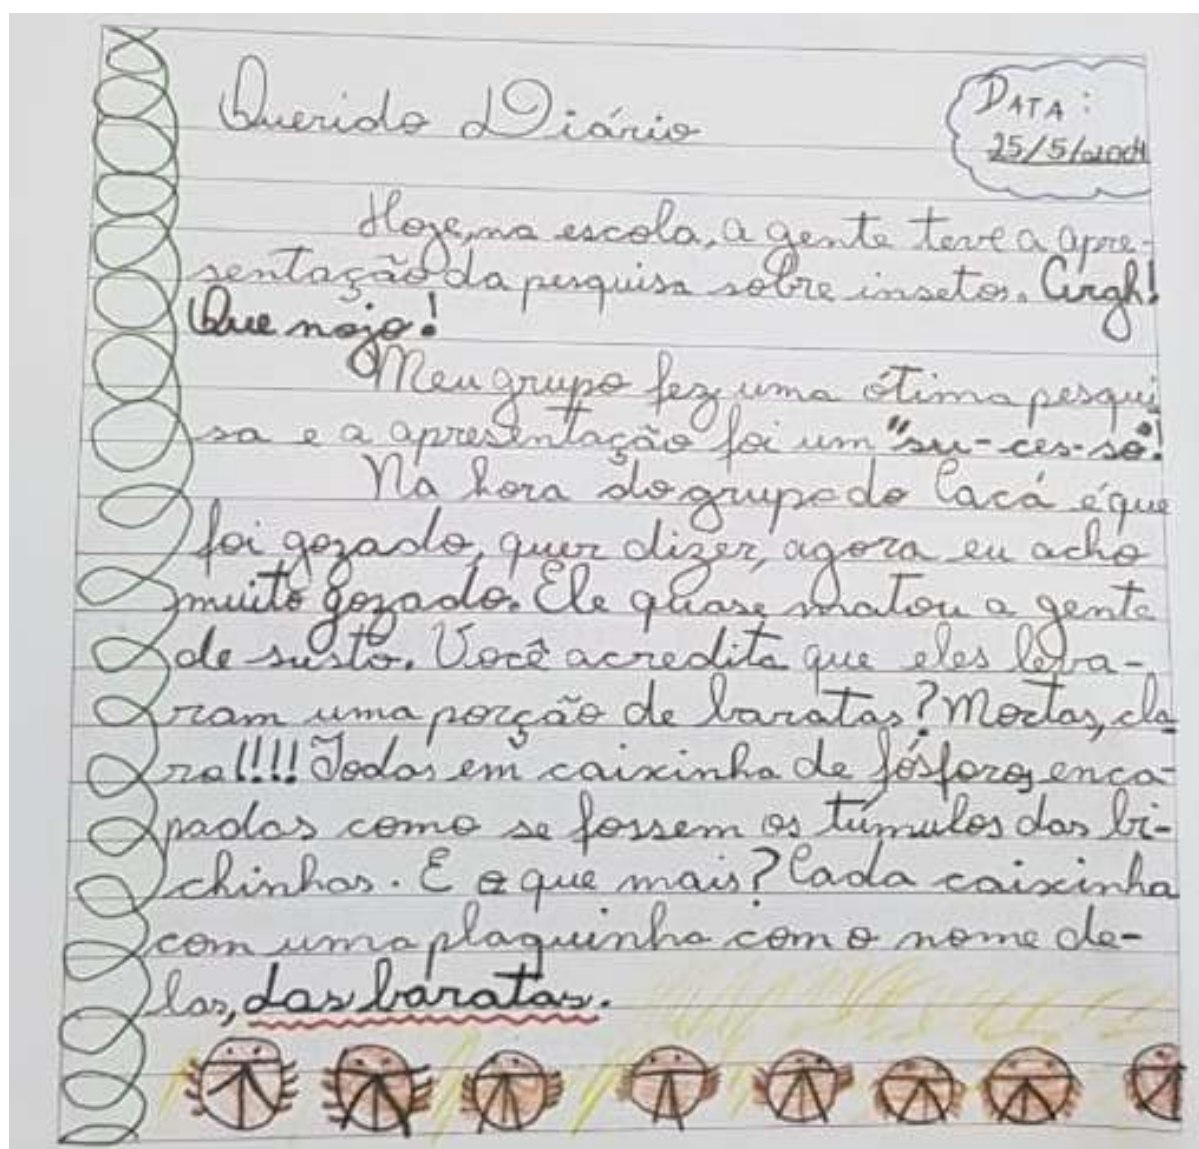 Querido Diário
DATA:
25/5/2004
Hoje, na escola, a gente teve a apre-
sentação da pesquisa sobre insetos. Argh!
Que nojo!
Meu grupo fez uma ótima pesqui
sa e a apresentação foi um "su-ces-so"!
Na hora do grupo do Cacá é que
foi gozado, quer dizer, agora eu acho
muito gozado. Ele quase matou a gente
de susto. Você acredita que eles leva-
ram uma porção de baratas? Mortas, cla
ro!!!! Todas em caixinha de fósforos, enca-
padas como se fossem os túmulos das bi-
chinhas. E o que mais? Cada caixinha
com uma plaquinha com o nome de-
las, das baratas.